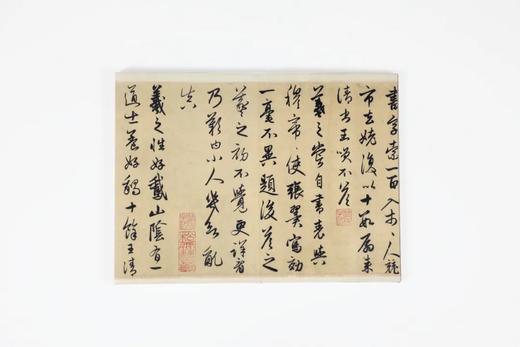 書字索一百入市〻人競
市去姥復以十數扇來
請書王笑不答
羲之嘗自書表與
穆帝〻使張翼寫効
一毫不異題後答之
羲之初不覺更詳看
乃歎曰小人幾欲亂
真
羲之性好鵝山陰有一
道士養好鵝十餘王清